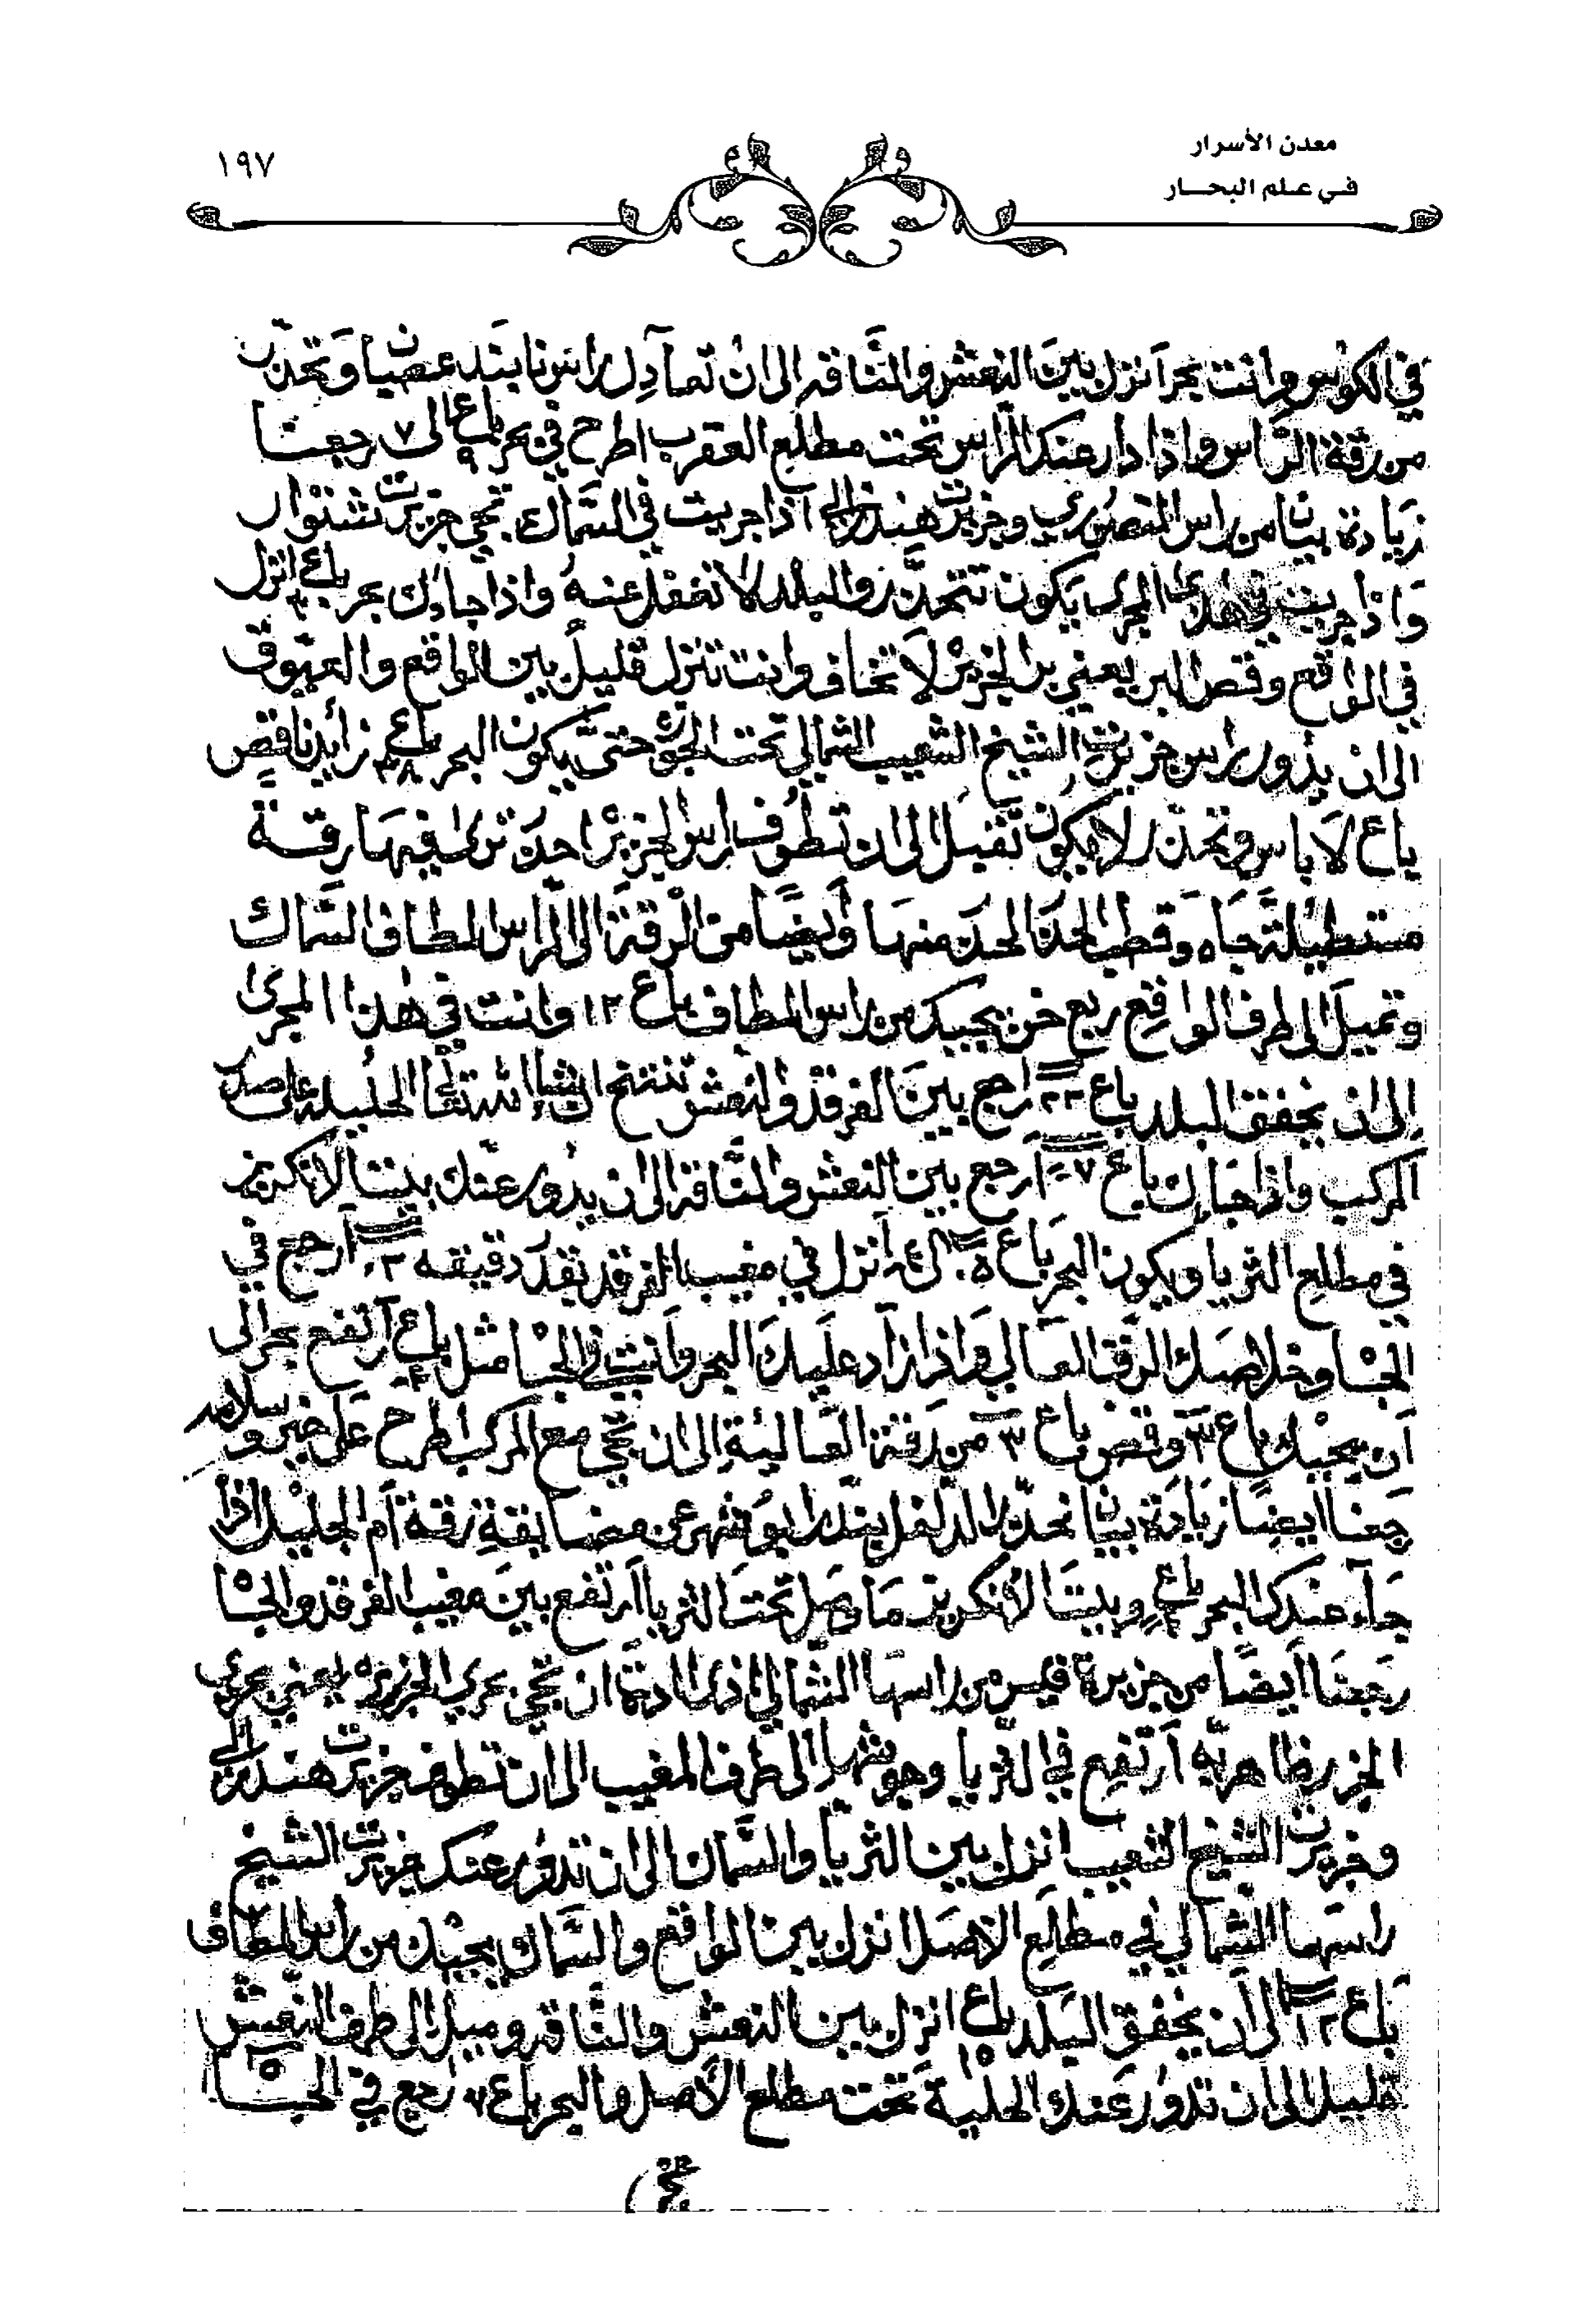 معدن الأسرار
في علم البحار
١٩٧
في الكوس وانت بحر آنزل بين النعش والناقه الى ان تعادل راس نابند عصيان وتحذر
من رقة الراس واذا دار عنك الراس تحت مطلع العقرب اطرح في بحر باع ٩ الى ٧ رجعنا
زيادة بيان من راس المقصوري وجزيرت هندرابي اذا جريت في السماك تجي جزيرت شتوار
واذا جريت في هذا المجرى يكون تتحذر والبلد لا تغفل عنه واذا جاءك بحر باع انزل
في الواقع وقص البر يعني بر الجزيره لا تخاف وانت تنزل قليل بين الواقع والعيوق
الى ان يدور راس جزيرت الشيخ الشعيب الشمالي تحت الجوزه حتى يكون البحر باع ٣٨ زايد ناقص
باع لا باس وتحذر لا يكون تقبل الى ان تطوف راس الجزيره احذر ترى فيها رقة
مستطيلة جاه وقطب الحذر الحذر منها وأيضًا من الرقة الى راس المطاف السماك
وتميل الى طرف الواقع ربع خن يجيبك من راس المطاف باع ١٢ وانت في هذا المجرى
إلى ان يخفق البلد باع ٢٢ ارجع بين الفرقد والنعش تنتخ ان شاء الله تعالى الحليله على صدر
المركب واذا جاءك باع ٧ ارجع بين النعش والناقه الى ان يدور عنك بيت الانكريز
في مطلع الثريا ويكون البحر باع ٥ الى ٤ انزل في مغيب الفرقد بقدر دقيقه ٣٠ ارجع في
الجاه وخلا صك الرق العالي واذا زاد عليك البحر وانت في الجاه مثل باع ٤ آرتفع بحر الى
آن يجيبك باع ٣ وقص باع ٣ من رقة العالية إلى ان تجي مع المركب اطرح على خير وسلامه
رجعنا أيضًا زيادة بيان نحذر الدلفل بندر ابوشهر عن مضايقة رقة أم الجليل اذا
جاء عندك البحر باع ٤ وبيت الانكريز ما وصل تحت الثريا آرتفع بين مغيب الفرقد والجاه
رجعنا أيضًا من جزيرة قيس من راسها الشمالي اذا اردت ان تجي بحري الجزيره يعني بحري
الجزر ظاهريه آرتفع في الثريا وهو شهر الى طرف المغيب الى ان تطوف جزيرت هندرابي
وجزيرت الشيخ الشعيب انزل بين الثريا والسماك الى ان تدور عنك جزيرت الشيخ
راسها الشمالي في مطلع الاصل انزل بين الواقع والسماك يجيبك من راس المطاف
باع ١٢ الى آن يخفق البلد باع ١٥ انزل بين النعش والناقه وميل الى طرف النعش
قليل الى ان تدور عنك الحليلة تحت مطلع الأصل والبحر باع ٧ ارجع في الجاه